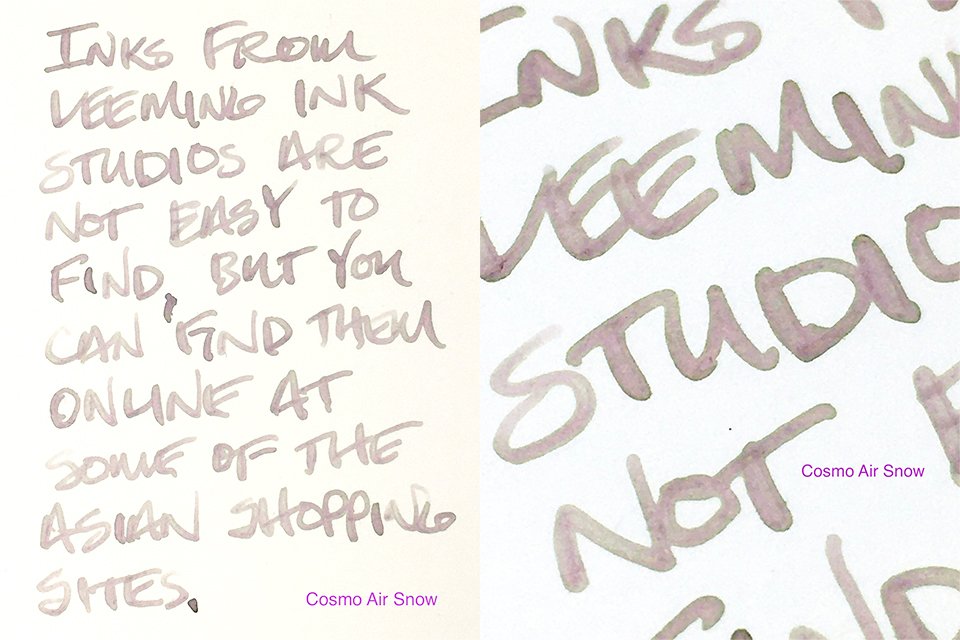 INKS FROM
VEEMING INK
STUDIOS ARE
NOT EASY TO
FIND, BUT YOU
CAN FIND THEM
ONLINE AT
SOME OF THE
ASIAN SHOPPING
SITES.
Cosmo Air Snow
INKS
VEEMIN
STUDIO
NOT
Cosmo Air Snow
FIND